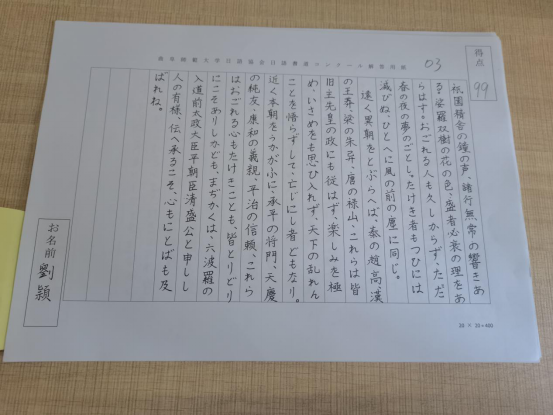 得点
99
03
祇園精舎の鐘の声、諸行無常の響きあ
り。娑羅双樹の花の色、盛者必衰の理をあ
らはす。おごれる人も久しからず、ただ
春の夜の夢のごとし。たけき者もつひには
滅びぬ、ひとへに風の前の塵に同じ。
遠く異朝をとぶらへば、秦の趙高、漢
の王莽、梁の朱异、唐の禄山、これらは皆
旧主先皇の政にも従はず、楽しみを極
め、いさめをも思ひ入れず、天下の乱れん
ことを悟らずして、亡じにし者どもなり。
近く本朝をうかがふに、承平の将門、天慶
の純友、康和の義親、平治の信頼、これら
はおごれる心もたけきことも、皆とりどり
にこそありしかども、まぢかくは、六波羅の
入道前太政大臣平朝臣清盛公と申しし
人の有様、伝へ承るこそ、心もことばも及
ばれね。
お名前 劉穎
20 × 20=400